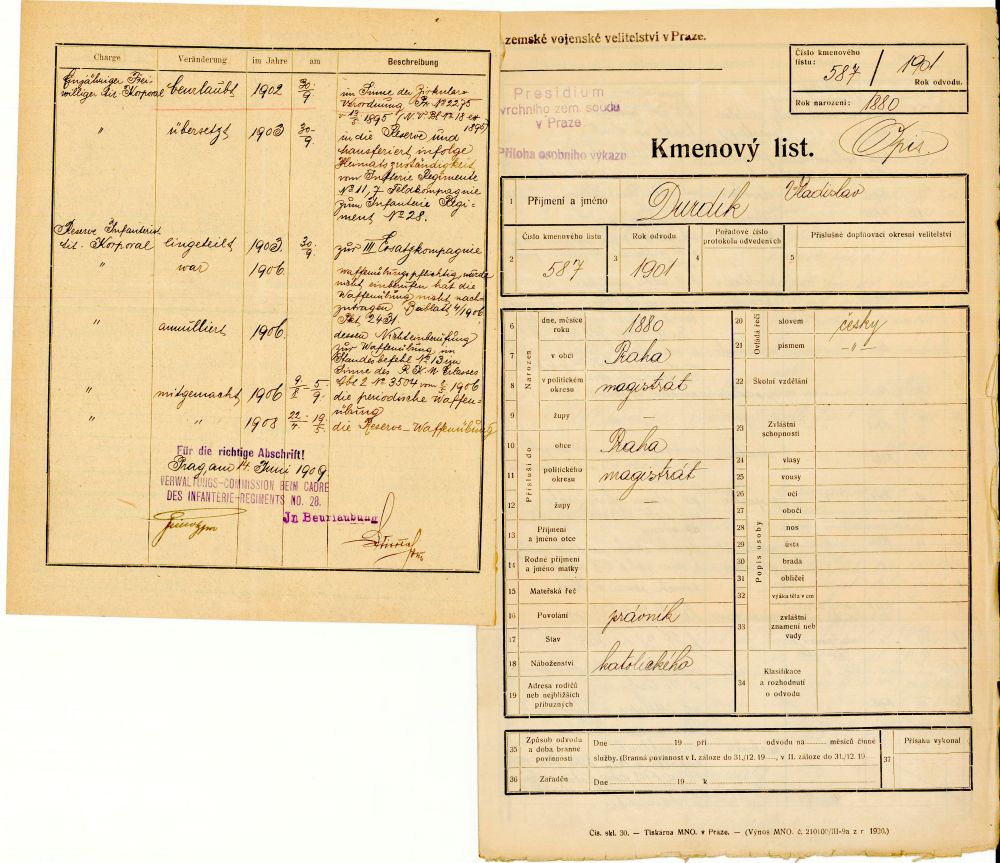 Charge Veränderung im Jahre am Beschreibung
Einjähriger Frei-
williger tit. Korporal beurlaubt 1902 30/9 im Sinne der Zirkular-
Verordnung Pr. Nº 2275
1895 (N. V. Bl. Nº 18 ex
1895)
" übersetzt 1903 30/9 in die Reserve und
transferiert, infolge
Heimatszuständigkeit
vom Infterie Regimente
Nº 11, 7 Feldkompagnie
zum Infanterie Regi-
ment Nº 28.
Reserve Infanterist
tit. Korporal eingeteilt 1903 30/9 zur III Ersatzkompagnie
" war 1906 waffenübungspflichtig, wurde
nicht einberufen hat die
Waffenübung nicht nach-
zutragen Beiblatt 4/1906
Pkt. 2431
" annulliert 1906 dessen Nichteinberufung
zur Waffenübung im
Standesbefehl Nº 13 im
Sinne des R. K. M. Erlasses
Abt 2 Nº 3504 vom 1906
" mitgemacht 1906 5/9 die periodische Waffen-
übung
" " 1908 22/4 19/5 die Reserve-Waffenübung
Für die richtige Abschrift!
Prag, am 14. Juni 1909
VERWALTUNGS-COMMISSION BEIM CADRE
DES INFANTERIE-REGIMENTS NO. 28.
In Beurlaubung
zemské vojenské velitelství v Praze.
Číslo kmenového
listu: 587 / 1901
Rok odvodu.
Rok narození: 1880
Presidium
vrchního zem. soudu
v Praze
Příloha osobního výkazu
Kmenový list. Opis
1 Příjmení a jméno Durdík Vladislav
Číslo kmenového listu Rok odvodu Pořadové číslo
protokolu odvedených Příslušné doplňovací okresní velitelství
2 587 3 1901 4 5
Narozen
6 dne, měsíce
roku 1880
7 v obci Praha
8 v politickém
okresu magistrát
9 župy —
Přísluší do
10 obce Praha
11 politického
okresu magistrát
12 župy —
13 Příjmení
a jméno otce
14 Rodné příjmení
a jméno matky
15 Mateřská řeč
16 Povolání právník
17 Stav
18 Náboženství katolického
19 Adresa rodičů
neb nejbližších
příbuzných
Ovládá řeči
20 slovem česky
21 písmem -"-
22 Školní vzdělání
23 Zvláštní
schopnosti
Popis osoby
24 vlasy
25 vousy
26 oči
27 obočí
28 nos
29 ústa
30 brada
31 obličej
32 výška těla v cm
33 zvláštní
znamení neb
vady
34 Klasifikace
a rozhodnutí
o odvodu
35 Způsob odvodu
a doba branné
povinnosti Dne 19 při odvodu na měsíců činné
služby. (Branná povinnost v I. záloze do 31./12. 19 , v II. záloze do 31./12. 19
36 Zařaděn Dne 19 k
37 Přísahu vykonal
Čís. skl. 30. — Tiskárna MNO. v Praze. — (Výnos MNO. č. 210100/III-9a z r 1920.)